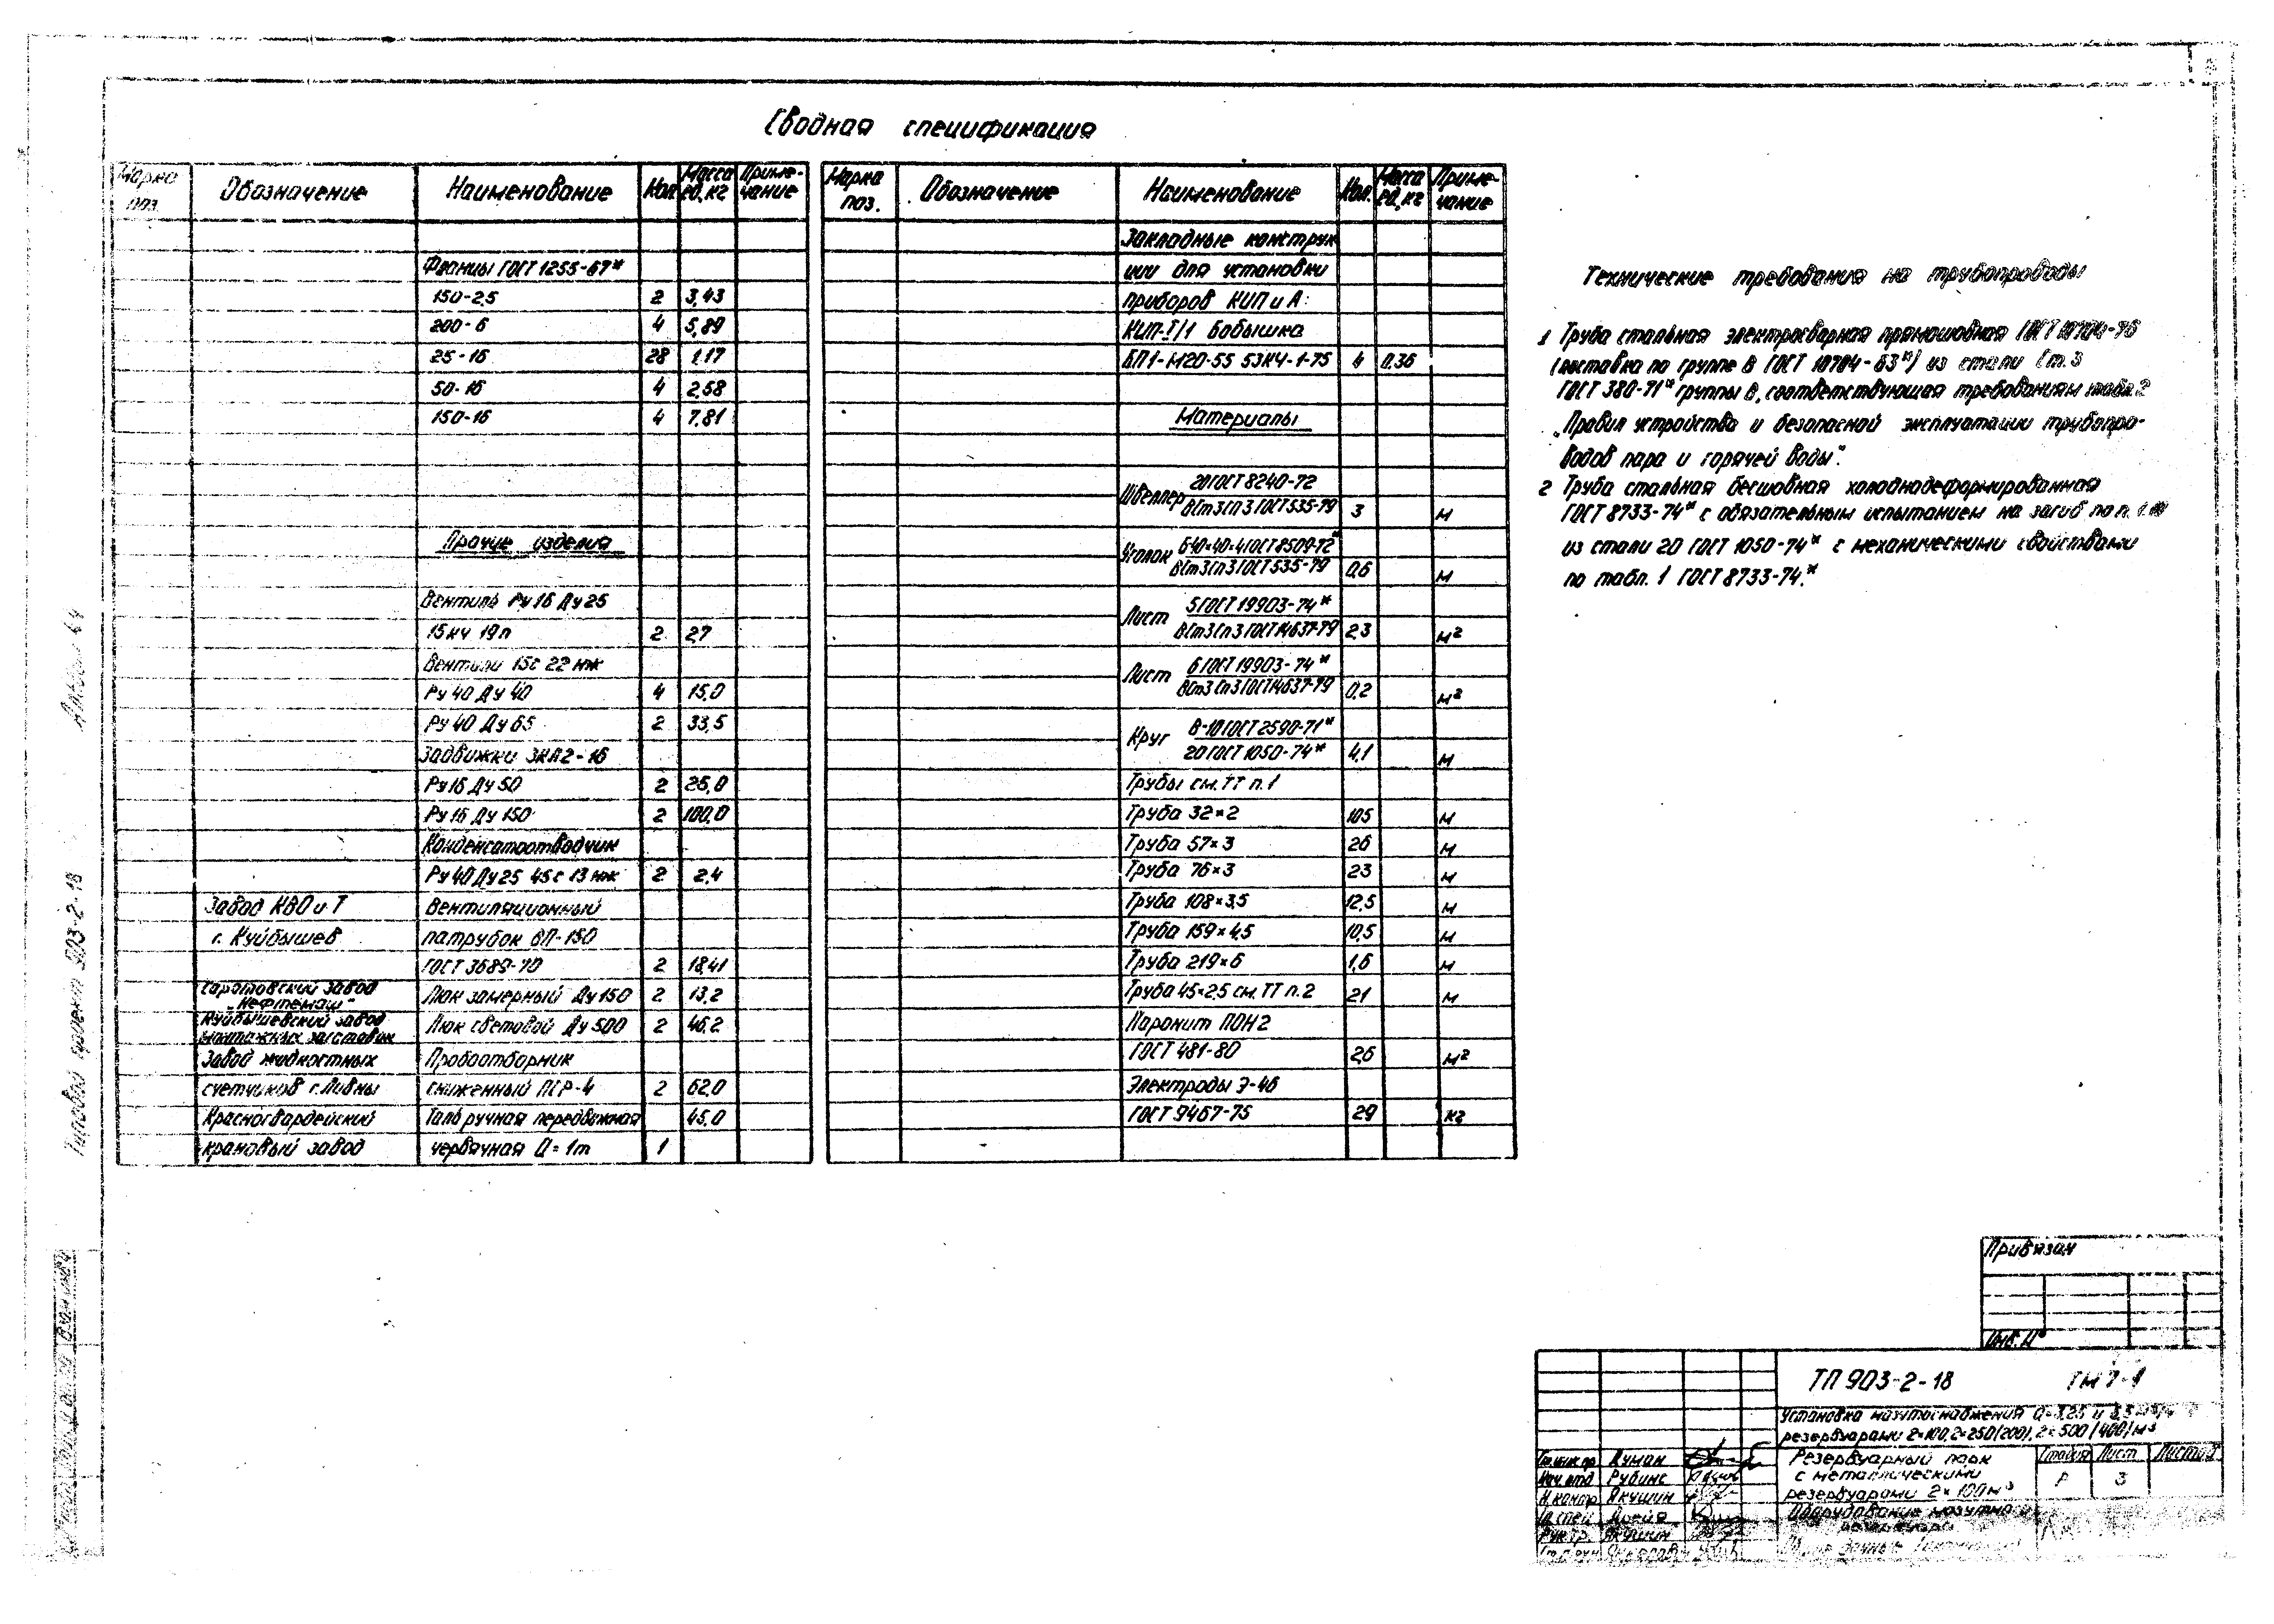 Сводная спецификация
Марка поз. Обозначение Наименование Кол. Масса ед, кг Приме-чание
Фланцы ГОСТ 1255-67*
150-2,5 2 3,43
200-6 4 5,89
25-16 28 1,17
50-16 4 2,58
150-16 4 7,81
Прочие изделия
Вентиль Ру16 Ду25
15кч 19п 2 2,7
Вентили 15с 22 нж
Ру 40 Ду 40 4 15,0
Ру 40 Ду 65 2 33,5
Задвижки ЗКЛ2-16
Ру16 Ду 50 2 26,0
Ру 16 Ду 150 2 100,0
Конденсатоотводчик
Ру 40 Ду 25 45с 13 нж 2 2,4
Завод КВО и Т Вентиляционный
г. Куйбышев патрубок ВП-150
ГОСТ 3689-70 2 18,41
Саратовский завод
„Нефтемаш" Люк замерный Ду 150 2 13,2
Куйбышевский завод
монтажных заготовок Люк световой Ду 500 2 46,2
Завод жидкостных Пробоотборник
счетчиков г. Ливны сниженный ПСР-4 2 62,0
Красногвардейский Таль ручная передвижная 45,0
крановый завод червячная Q=1т 1
Марка поз. Обозначение Наименование Кол. Масса ед, кг Приме-чание
Закладные конструк
ции для установки
приборов КИП и А:
КИП-Т/1 Бобышка
БП1-М20-55 53КЧ-1-75 4 0,36
Материалы
20 ГОСТ 8240-72
Швеллер ВСт3 Сп3 ГОСТ 535-79 3 м
Б40×40×4 ГОСТ 8509-72*
Уголок ВСт3 Сп3 ГОСТ 535-79 0,6 м
5 ГОСТ 19903-74*
Лист ВСт3 Сп3 ГОСТ 14637-79 2,3 м²
6 ГОСТ 19903-74*
Лист ВСт3 Сп3 ГОСТ 14637-79 0,2 м²
В-10 ГОСТ 2590-71*
Круг 20 ГОСТ 1050-74* 4,1 м
Трубы см. ТТ п.1
Труба 32×2 105 м
Труба 57×3 26 м
Труба 76×3 23 м
Труба 108×3,5 12,5 м
Труба 159×4,5 10,5 м
Труба 219×6 1,6 м
Труба 45×2,5 см. ТТ п.2 21 м
Паронит ПОН2
ГОСТ 481-80 2,6 м²
Электроды Э-46
ГОСТ 9467-75 29 кг
Технические требования на трубопроводы
1 Труба стальная электросварная прямошовная ГОСТ 10704-76
(поставка по группе В ГОСТ 10704-63*) из стали Ст.3
ГОСТ 380-71* группы В, соответствующая требованиям табл.2
„Правил устройства и безопасной эксплуатации трубопро-
водов пара и горячей воды".
2 Труба стальная бесшовная холоднодеформированная
ГОСТ 8733-74* с обязательным испытанием на загиб по п.
из стали 20 ГОСТ 1050-74* с механическими свойствами
по табл. 1 ГОСТ 8733-74.*
Альбом
Типовой проект 903-2-18
Привязан
Инв. №
ТП 903-2-18 ТМ7-1
Установка мазутоснабжения Q=3,25 и
резервуарами 2×100, 2×250(200), 2×500(400) м³
Гл.инж.пр Думан
Нач.отд Рубинс
Н.контр Якушин
Гл.спец
Рук.гр. Якушин
Резервуарный парк
с металлическими
резервуарами 2×100м³
Оборудование мазутно
Стадия Лист Листов
Р 3